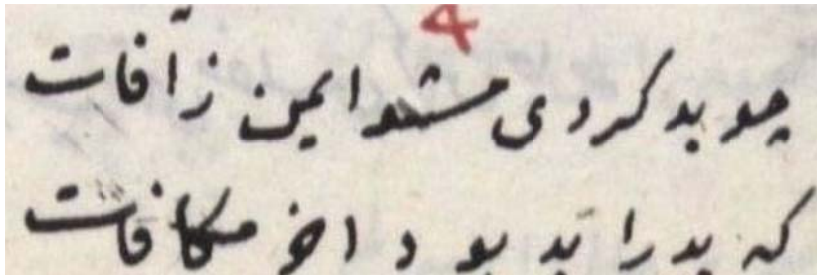 ۴
چو بد کردی مشو ایمن ز آفات
که بد را بد بود اخر مکافات